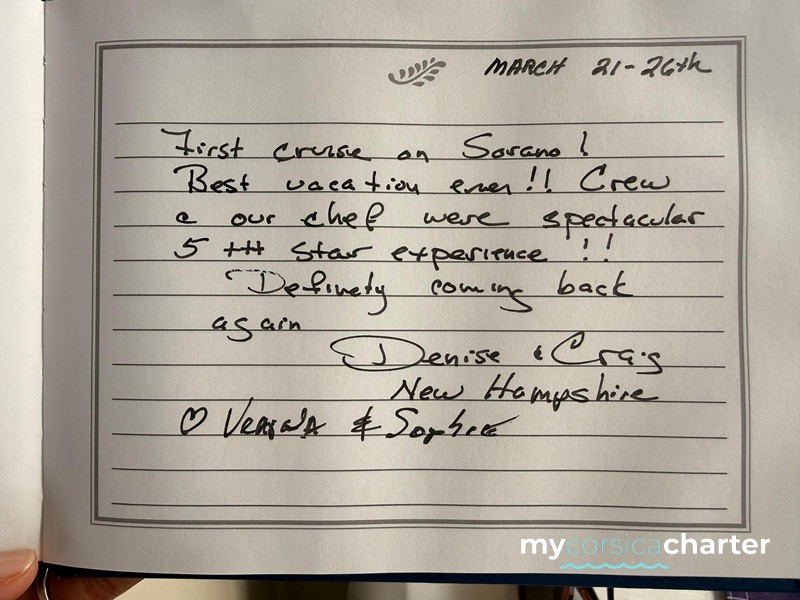 MARCH 21-26th
First cruise on Sorano!
Best vacation ever!! Crew
& our chef were spectacular
5 +++ star experience !!
Definety coming back
again
Denise & Craig
New Hampshire
♡ & Sophie
mycorsicacharter